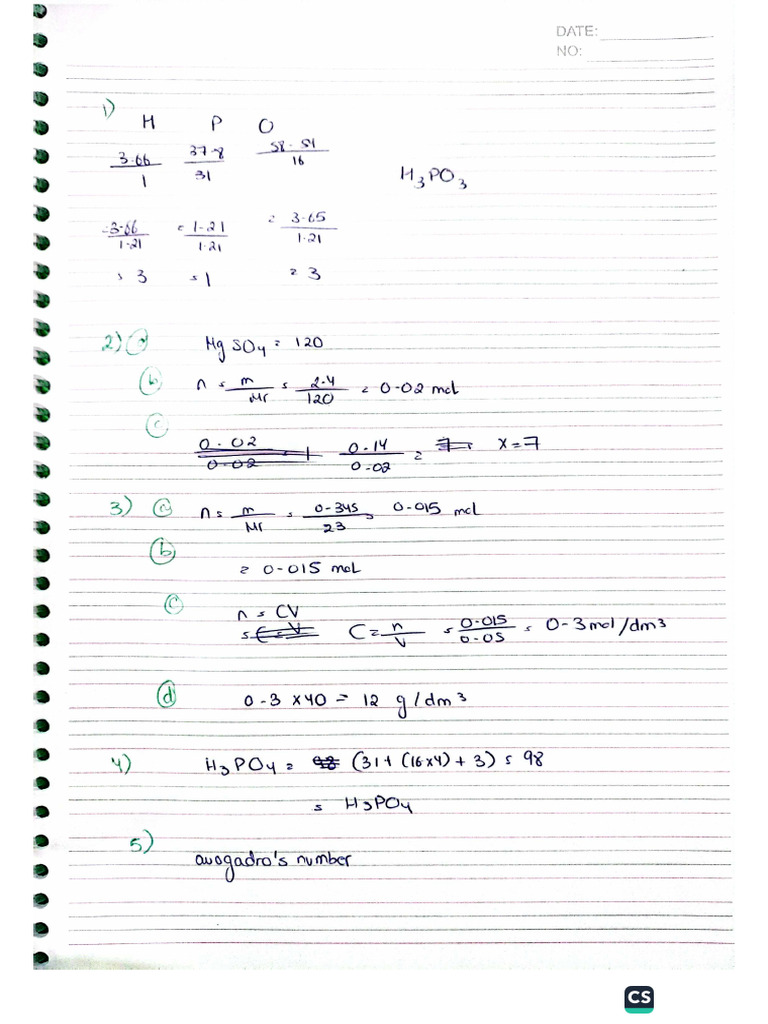 DATE:
NO:
1)
H P O
3.66/1 37.8/31 58.54/16
H3PO3
=3.66/1.21 =1.21/1.21 = 3.65/1.21
= 3 = 1 = 3
2) (a) MgSO4 = 120
(b) n = m/Mr = 2.4/120 = 0.02 mol
(c)
0.14/0.02 = X=7
3) (a) n = m/Mr = 0.345/23 = 0.015 mol
(b)
= 0.015 mol
(c)
n = CV
C = n/V = 0.015/0.05 = 0.3 mol/dm3
(d) 0.3 x40 = 12 g/dm3
4) H3PO4 = (31+ (16x4) + 3) = 98
= H3PO4
5)
avogadro's number
CS